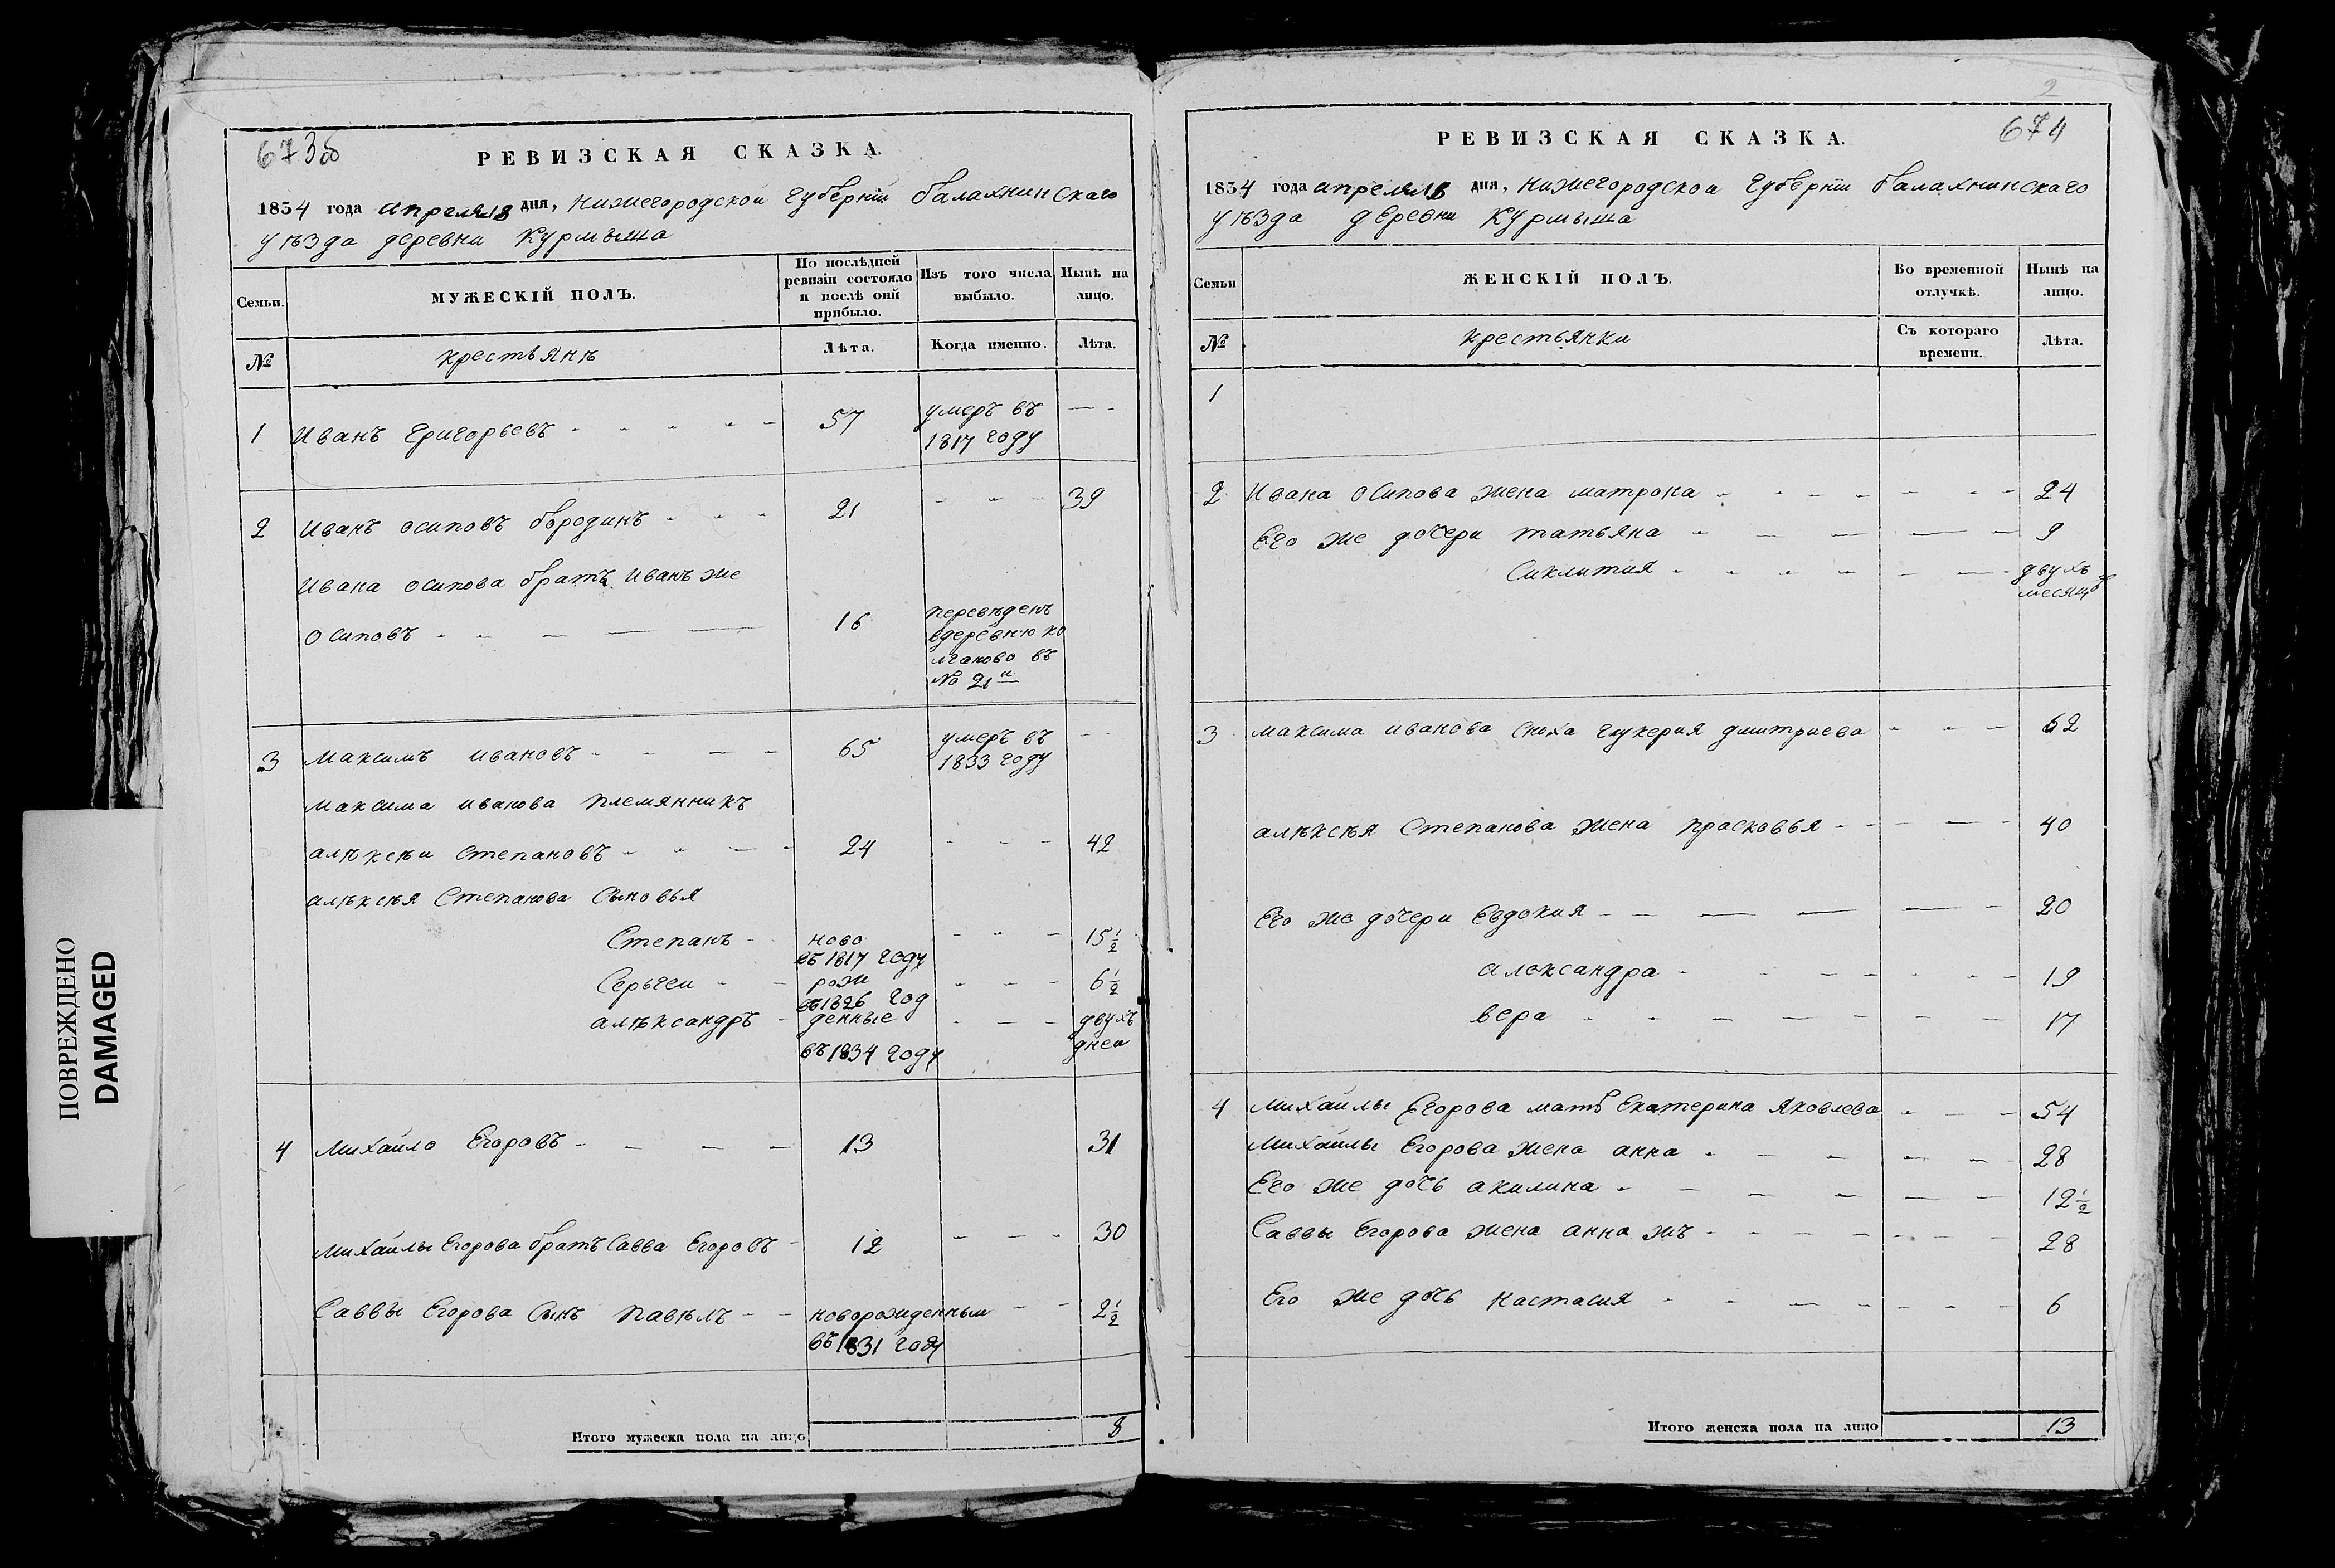 ПОВРЕЖДЕНО
DAMAGED
673об
РЕВИЗСКАЯ СКАЗКА.
1834 года апреля 18 дня, Нижегородской губернiи балахнинскаго
уѣзда деревни Курмыша
Семьи.
МУЖЕСКІЙ ПОЛЪ.
По послѣдней ревизіи состояло и послѣ оній прибыло.
Изъ того числа выбыло.
Нынѣ на лицо.
№
крестьянѣ
Лѣта.
Когда именно.
Лѣта.
1 Иванъ григорьевъ 57 умеръ въ
1817 году
2 Иванъ осиповъ бородинъ 21 39
Ивана осипова братъ Иванъ же
осиповъ 16 перевѣденъ
вдеревню ко
лчаново въ
№ 21й
3 максимъ ивановъ 65 умеръ въ
1833 году
максима иванова племянникъ
алѣксѣи степановъ 24 42
алѣксѣя Степанова Сыновья
Степанъ ново 15 1/2
въ 1817 году
Серьгеи рож 6 1/2
въ 1826 год
алѣксандръ денные двухъ
въ 1834 году днеи
4 михаило Егоровъ 13 31
михаилы Егорова братъ Савва Егоровъ 12 30
Саввы Егорова Сынъ павѣлъ новорожденныи 2 1/2
въ 1831 году
Итого мужеска пола на лицо 8
2
674
РЕВИЗСКАЯ СКАЗКА.
1834 года апреля 18 дня, Нижегородскои губернiи балахнинскаго
уѣзда деревни Курмыша
Семьи
ЖЕНСКІЙ ПОЛЪ.
Во временной отлучкѣ.
Нынѣ на лицо.
№
крестьянки
Съ котораго времени.
Лѣта.
1
2 Ивана осипова жена матрона 24
Его же дочери татьяна 9
Сиклития двухъ
месяцов
3 максима иванова сноха глукерия дмитриева 62
алѣксѣя Степанова жена прасковья 40
Его же дочери Евдокия 20
александра 19
вера 17
4 михаилы Егорова мать Екатерина Яковлева 54
михаилы Егорова жена анна 28
Его же дочь акилина 12 1/2
Саввы Егорова жена анна жъ 28
Его же дочь настасия 6
Итого женска пола на лицо 13